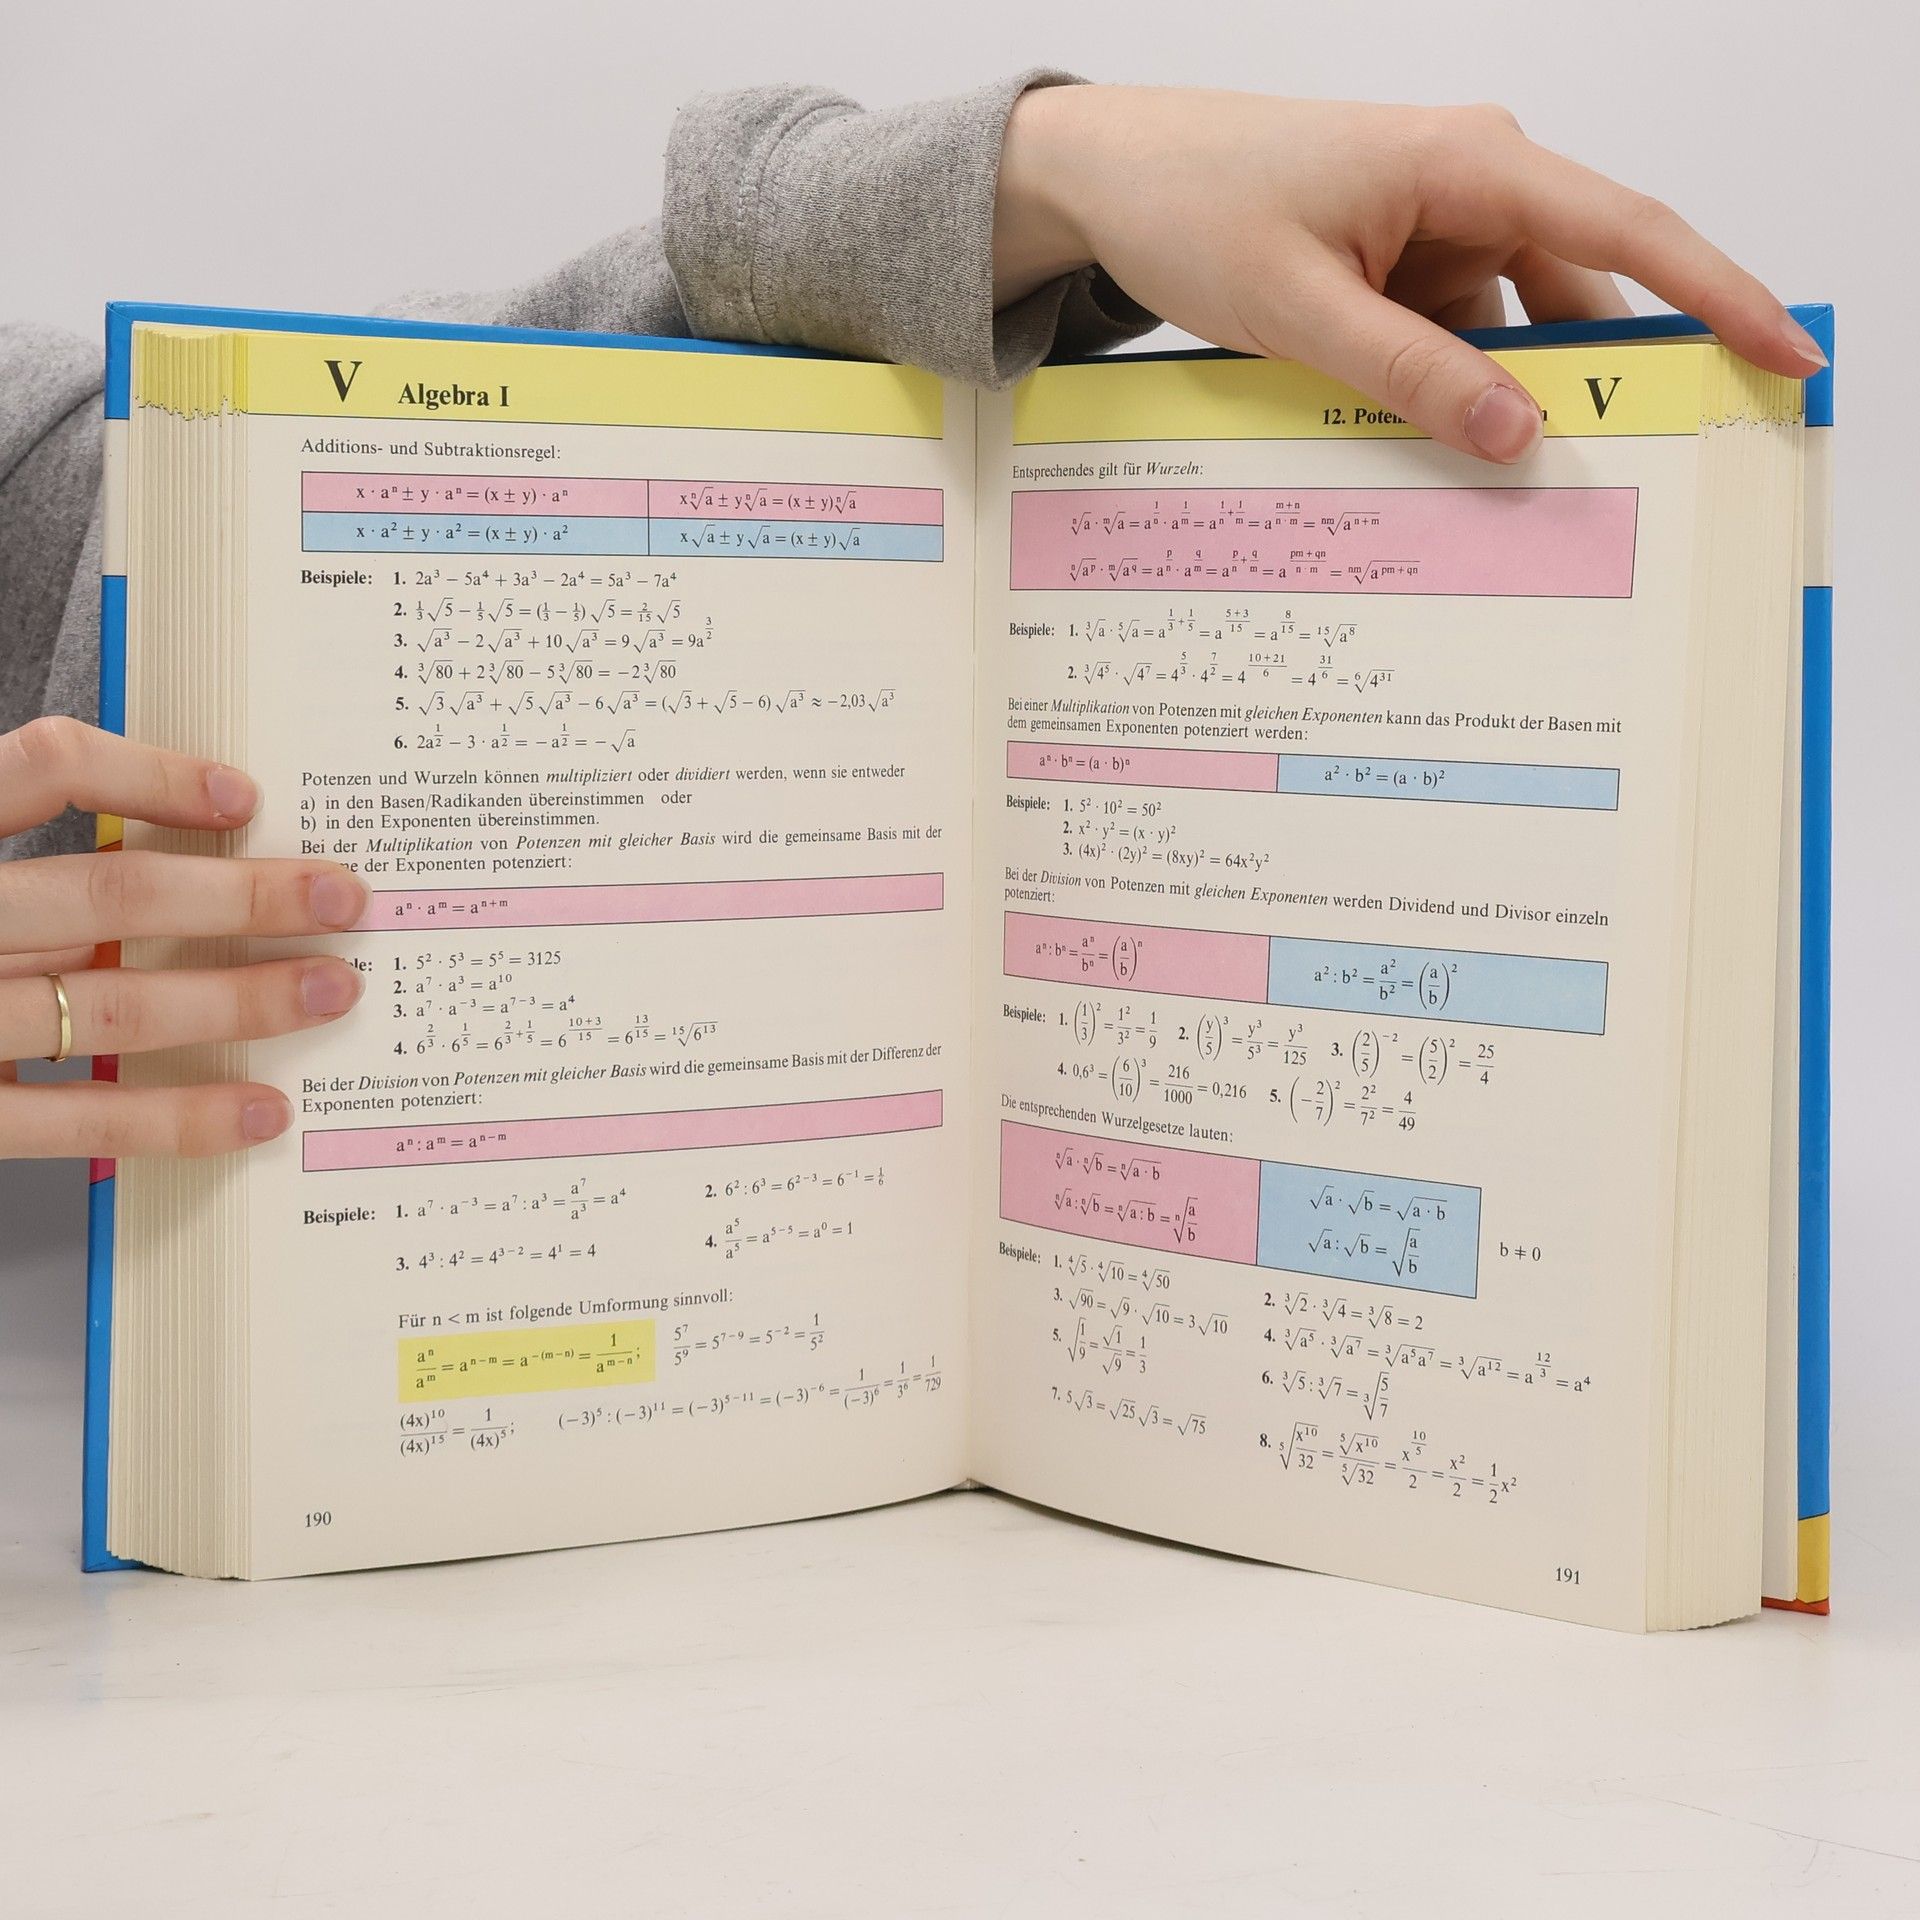 V Algebra I
Additions- und Subtraktionsregel:
x · aⁿ ± y · aⁿ = (x ± y) · aⁿ
x ⁿ√a ± y ⁿ√a = (x ± y) ⁿ√a
x · a² ± y · a² = (x ± y) · a²
x √a ± y √a = (x ± y) √a
Beispiele: 1. 2a³ − 5a⁴ + 3a³ − 2a⁴ = 5a³ − 7a⁴
2. 1/3 √5 − 1/5 √5 = (1/3 − 1/5) √5 = 2/15 √5
3. √a³ − 2 √a³ + 10 √a³ = 9 √a³ = 9a^(3/2)
4. ³√80 + 2 ³√80 − 5 ³√80 = −2 ³√80
5. √3 √a³ + √5 √a³ − 6 √a³ = (√3 + √5 − 6) √a³ ≈ −2,03 √a³
6. 2a^(1/2) − 3 · a^(1/2) = −a^(1/2) = −√a
Potenzen und Wurzeln können multipliziert oder dividiert werden, wenn sie entweder
a) in den Basen/Radikanden übereinstimmen oder
b) in den Exponenten übereinstimmen.
Bei der Multiplikation von Potenzen mit gleicher Basis wird die gemeinsame Basis mit der
der Exponenten potenziert:
aⁿ · aᵐ = aⁿ⁺ᵐ
1. 5² · 5³ = 5⁵ = 3125
2. a⁷ · a³ = a¹⁰
3. a⁷ · a⁻³ = a⁷⁻³ = a⁴
4. 6^(2/3) · 6^(1/5) = 6^(2/3 + 1/5) = 6^((10+3)/15) = 6^(13/15) = ¹⁵√6¹³
Bei der Division von Potenzen mit gleicher Basis wird die gemeinsame Basis mit der Differenz der
Exponenten potenziert:
aⁿ : aᵐ = aⁿ⁻ᵐ
Beispiele: 1. a⁷ · a⁻³ = a⁷ : a³ = a⁷/a³ = a⁴
2. 6² : 6³ = 6²⁻³ = 6⁻¹ = 1/6
3. 4³ : 4² = 4³⁻² = 4¹ = 4
4. a⁵/a⁵ = a⁵⁻⁵ = a⁰ = 1
Für n < m ist folgende Umformung sinnvoll:
aⁿ/aᵐ = aⁿ⁻ᵐ = a^(−(m−n)) = 1/a^(m−n); 5⁷/5⁹ = 5⁷⁻⁹ = 5⁻² = 1/5²
(4x)¹⁰/(4x)¹⁵ = 1/(4x)⁵; (−3)⁵ : (−3)¹¹ = (−3)⁵⁻¹¹ = (−3)⁻⁶ = 1/(−3)⁶ = 1/3⁶ = 1/729
190
12. V
Entsprechendes gilt für Wurzeln:
ⁿ√a · ᵐ√a = a^(1/n) · a^(1/m) = a^(1/n + 1/m) = a^((m+n)/(n·m)) = ⁿᵐ√a^(n+m)
ⁿ√aᵖ · ᵐ√a^q = a^(p/n) · a^(q/m) = a^(p/n + q/m) = a^((pm+qn)/(n·m)) = ⁿᵐ√a^(pm+qn)
Beispiele: 1. ³√a · ⁵√a = a^(1/3 + 1/5) = a^((5+3)/15) = a^(8/15) = ¹⁵√a⁸
2. ³√4⁵ · √4⁷ = 4^(5/3) · 4^(7/2) = 4^((10+21)/6) = 4^(31/6) = ⁶√4³¹
Bei einer Multiplikation von Potenzen mit gleichen Exponenten kann das Produkt der Basen mit
dem gemeinsamen Exponenten potenziert werden:
aⁿ · bⁿ = (a · b)ⁿ
a² · b² = (a · b)²
Beispiele: 1. 5² · 10² = 50²
2. x² · y² = (x · y)²
3. (4x)² · (2y)² = (8xy)² = 64x²y²
Bei der Division von Potenzen mit gleichen Exponenten werden Dividend und Divisor einzeln
potenziert:
aⁿ : bⁿ = aⁿ/bⁿ = (a/b)ⁿ
a² : b² = a²/b² = (a/b)²
Beispiele: 1. (1/3)² = 1²/3² = 1/9 2. (y/5)³ = y³/5³ = y³/125 3. (2/5)⁻² = (5/2)² = 25/4
4. 0,6³ = (6/10)³ = 216/1000 = 0,216 5. (−2/7)² = 2²/7² = 4/49
Die entsprechenden Wurzelgesetze lauten:
ⁿ√a · ⁿ√b = ⁿ√(a · b)
ⁿ√a : ⁿ√b = ⁿ√(a : b) = ⁿ√(a/b)
√a · √b = √(a · b)
√a : √b = √(a/b)
b ≠ 0
Beispiele: 1. ⁴√5 · ⁴√10 = ⁴√50
2. ³√2 · ³√4 = ³√8 = 2
3. √90 = √9 · √10 = 3 √10
4. ³√a⁵ · ³√a⁷ = ³√(a⁵a⁷) = ³√a¹² = a^(12/3) = a⁴
5. √(1/9) = √1/√9 = 1/3
6. ³√5 : ³√7 = ³√(5/7)
7. 5 √3 = √25 √3 = √75
8. ⁵√(x¹⁰/32) = ⁵√x¹⁰/⁵√32 = x^(10/5)/2 = x²/2 = 1/2 x²
191